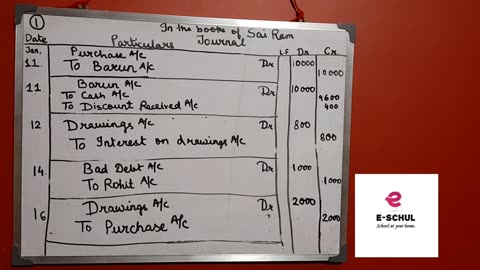 ①
In the books of Sai Ram
Journal
Date Particulars L.F Dr Cr
Jan.
11. Purchase A/c Dr 10000
To Barun A/c 10000
11 Barun A/c Dr 10000
To Cash A/c 9600
To Discount Received A/c 400
12 Drawings A/c Dr 800
To Interest on drawings A/c 800
14. Bad Debt A/c Dr 1000
To Rohit A/c 1000
16 Drawings A/c Dr 2000
To Purchase A/c 2000
e
E-SCHUL
School at your home.